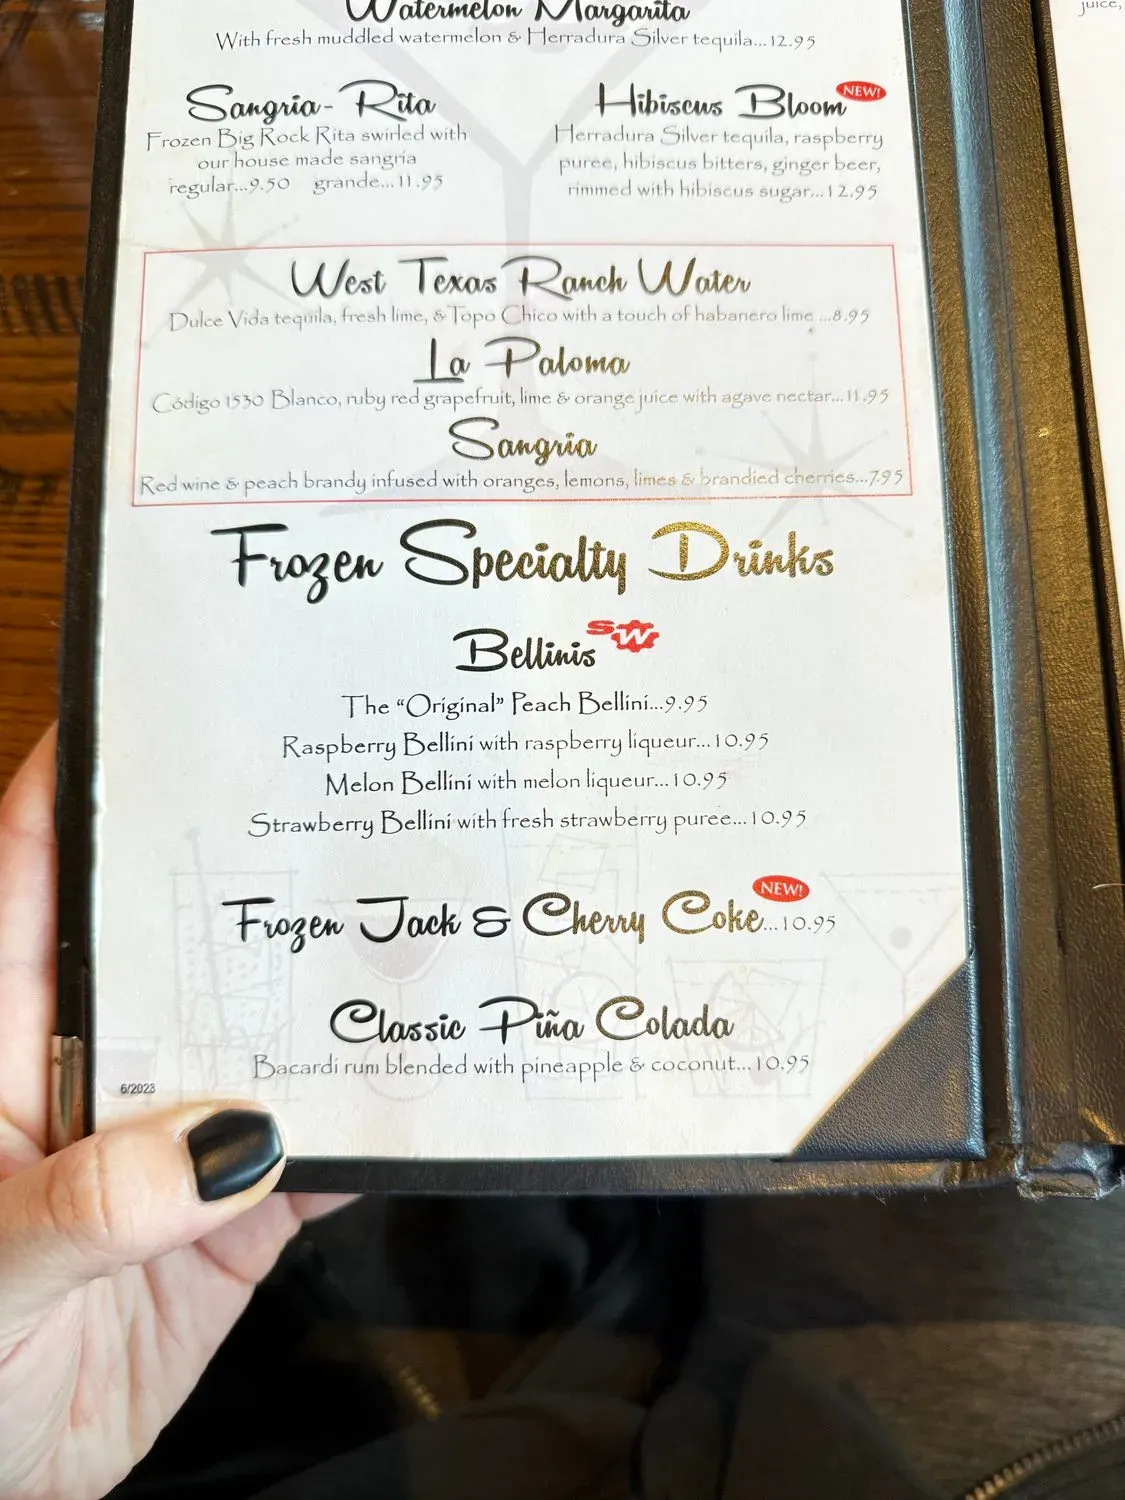 Watermelon Margarita
With fresh muddled watermelon & Herradura Silver tequila...12.95
Sangria-Rita
Frozen Big Rock Rita swirled with
our house made sangria
regular...9.50 grande...11.95
Hibiscus Bloom NEW!
Herradura Silver tequila, raspberry
puree, hibiscus bitters, ginger beer,
rimmed with hibiscus sugar...12.95
West Texas Ranch Water
Dulce Vida tequila, fresh lime, & Topo Chico with a touch of habanero lime...8.95
La Paloma
Código 1530 Blanco, ruby red grapefruit, lime & orange juice with agave nectar...11.95
Sangria
Red wine & peach brandy infused with oranges, lemons, limes & brandied cherries...7.95
Frozen Specialty Drinks
Bellinis SW
The “Original” Peach Bellini...9.95
Raspberry Bellini with raspberry liqueur...10.95
Melon Bellini with melon liqueur...10.95
Strawberry Bellini with fresh strawberry puree...10.95
Frozen Jack & Cherry Coke...10.95 NEW!
Classic Piña Colada
Bacardi rum blended with pineapple & coconut...10.95
6/2023
juice,